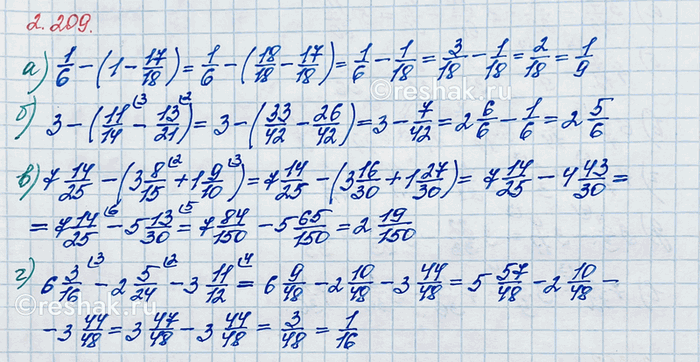 2.209.
а) 1/6 − (1 − 17/18) = 1/6 − (18/18 − 17/18) = 1/6 − 1/18 = 3/18 − 1/18 = 2/18 = 1/9
б) 3 − (11/14 (3 − 13/21 (2) = 3 − (33/42 − 26/42) = 3 − 7/42 = 2 6/6 − 1/6 = 2 5/6
в) 7 14/25 − (3 8/15 (2 + 1 9/10 (3) = 7 14/25 − (3 16/30 + 1 27/30) = 7 14/25 − 4 43/30 =
= 7 14/25 (6 − 5 13/30 (5 = 7 84/150 − 5 65/150 = 2 19/150
г) 6 3/16 (3 − 2 5/24 (2 − 3 11/12 (4 = 6 9/48 − 2 10/48 − 3 44/48 = 5 57/48 − 2 10/48 −
− 3 44/48 = 3 47/48 − 3 44/48 = 3/48 = 1/16
©reshak.ru
©reshak.ru